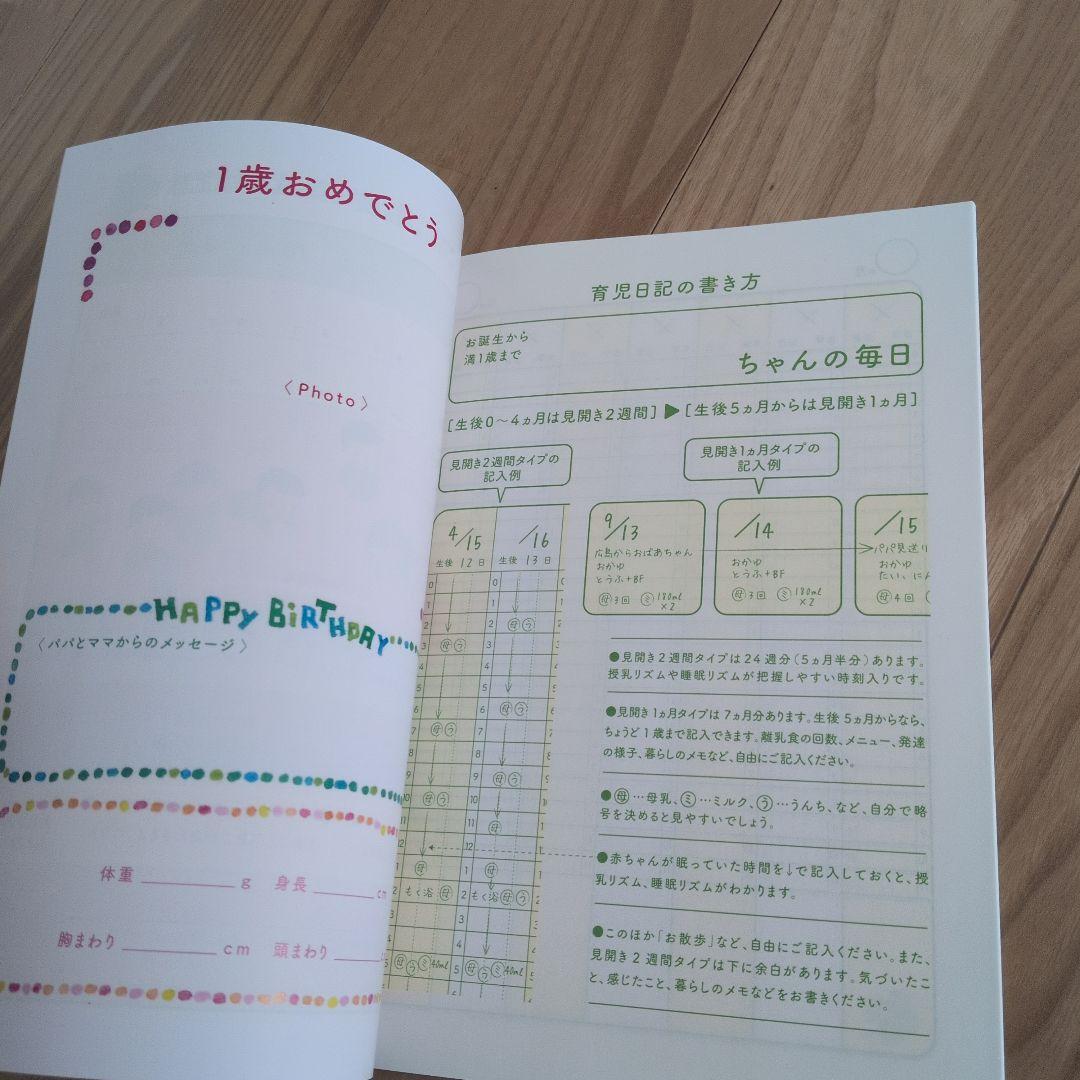 1歳おめでとう
〈Photo〉
HAPPY BiRTHDAY
〈パパとママからのメッセージ〉
体重 g 身長 cm
胸まわり cm 頭まわり
育児日記の書き方
お誕生から
満1歳まで
ちゃんの毎日
[生後0〜4ヵ月は見開き2週間]▶[生後5ヵ月からは見開き1ヵ月]
見開き2週間タイプの
記入例
4/15
/16
生後 12日
生後 13日
0 0
1 1
2 2 母 う
3 母 う 3
5
6 母 う 6
7 母 う
8 8
9 9 母 う
10 母 う 10
11 11 母
12
1 母 1 母
2 もく浴 母 2 もく浴 母 う
3 3
4 4
5 母 う ミ 40ml 5 母 う ミ 40ml
6 6
見開き1ヵ月タイプの
記入例
9/13
広島からおばあちゃん
おかゆ
とうふ+BF
母 3回 ミ 180ml
×2
/14
おかゆ
とうふ+BF
母 3回 ミ 180ml
×2
/15
パパ見送り
おかゆ
たい、にん
母 4回
●見開き2週間タイプは24週分(5ヵ月半分)あります。
授乳リズムや睡眠リズムが把握しやすい時刻入りです。
●見開き1ヵ月タイプは7ヵ月分あります。生後5ヵ月からなら、
ちょうど1歳まで記入できます。離乳食の回数、メニュー、発達
の様子、暮らしのメモなど、自由にご記入ください。
●母…母乳、ミ…ミルク、う…うんち、など、自分で略
号を決めると見やすいでしょう。
●赤ちゃんが眠っていた時間を↓で記入しておくと、授
乳リズム、睡眠リズムがわかります。
●このほか「お散歩」など、自由にご記入ください。また、
見開き2週間タイプは下に余白があります。気づいたこ
と、感じたこと、暮らしのメモなどをお書きください。